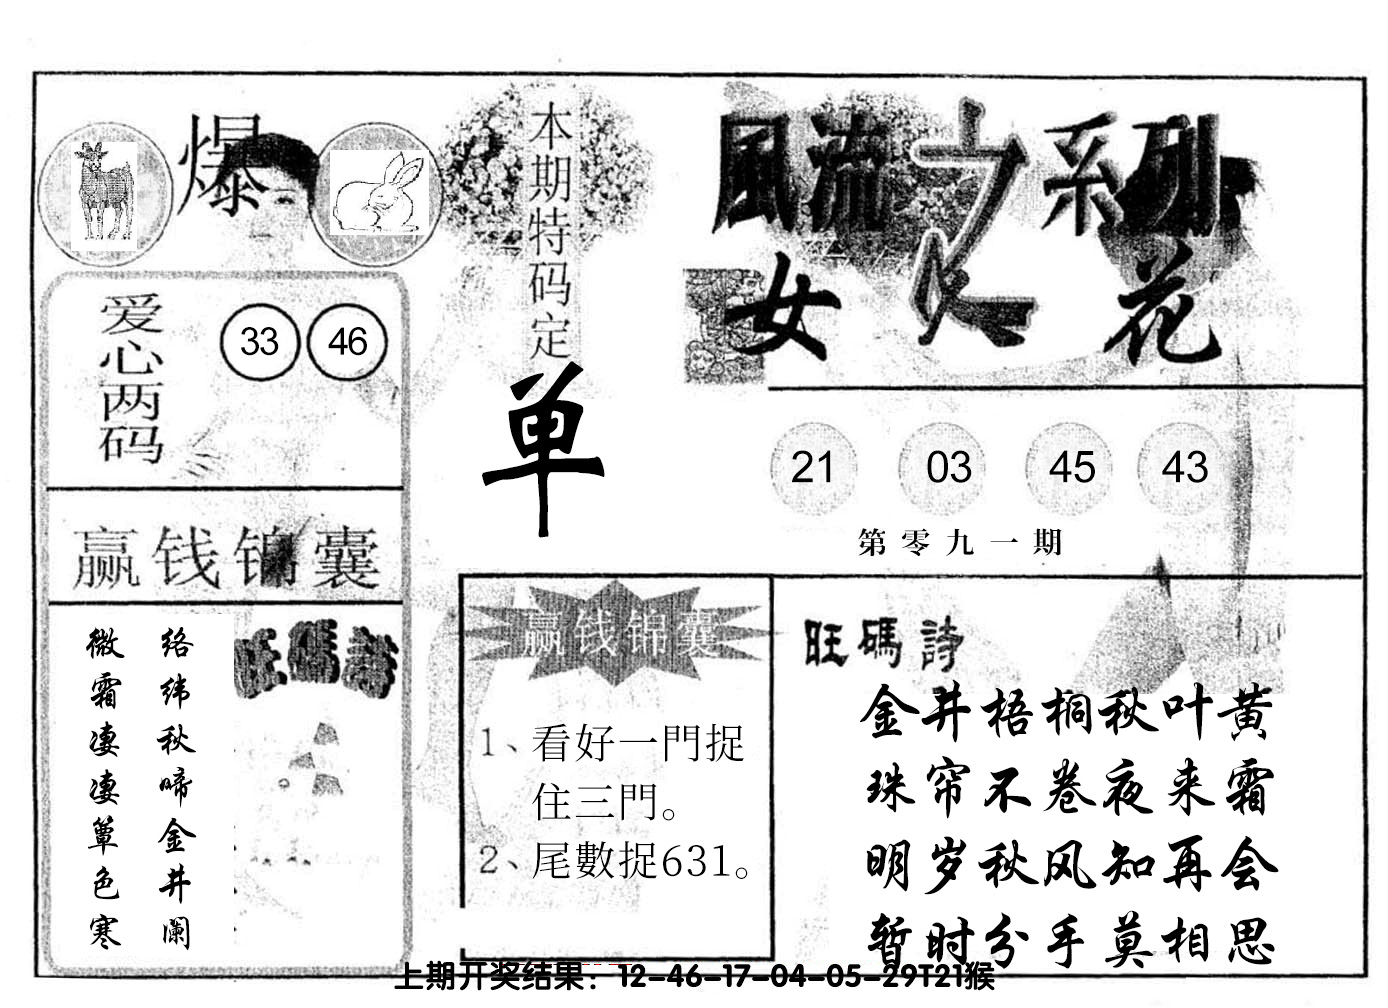 爆
本期特码定
单
風流之系列
女人花
爱心两码
33 46
21 03 45 43
第零九一期
赢钱锦囊
旺碼詩
络纬秋啼金井阑
微霜凄凄簟色寒
赢钱锦囊
1、看好一門捉
住三門。
2、尾數捉631。
旺碼詩
金井梧桐秋叶黄
珠帘不卷夜来霜
明岁秋风知再会
暂时分手莫相思
上期开奖结果：12-46-17-04-05-29T21猴